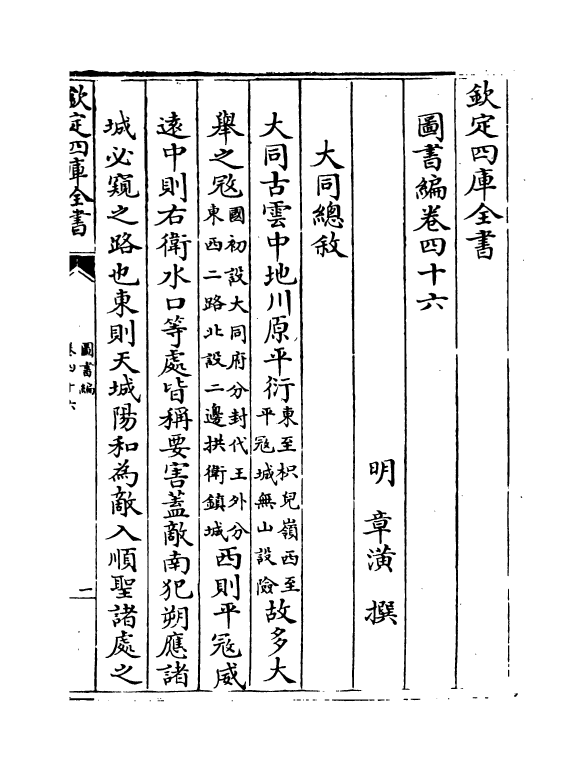 欽定四庫全書
圖書編卷四十六
明 章潢 撰
大同總敘
大同古雲中地川原平衍東至枳兒嶺西至平冦城無山設險故多大
舉之冦國初設大同府分封代王外分東西二路北設二邊拱衛鎮城西則平冦威
遠中則右衛水口等處皆稱要害蓋敵南犯朔應諸
城必窺之路也東則天城陽和為敵入順聖諸處之
欽定四庫全書
圖書編
卷四十六
一